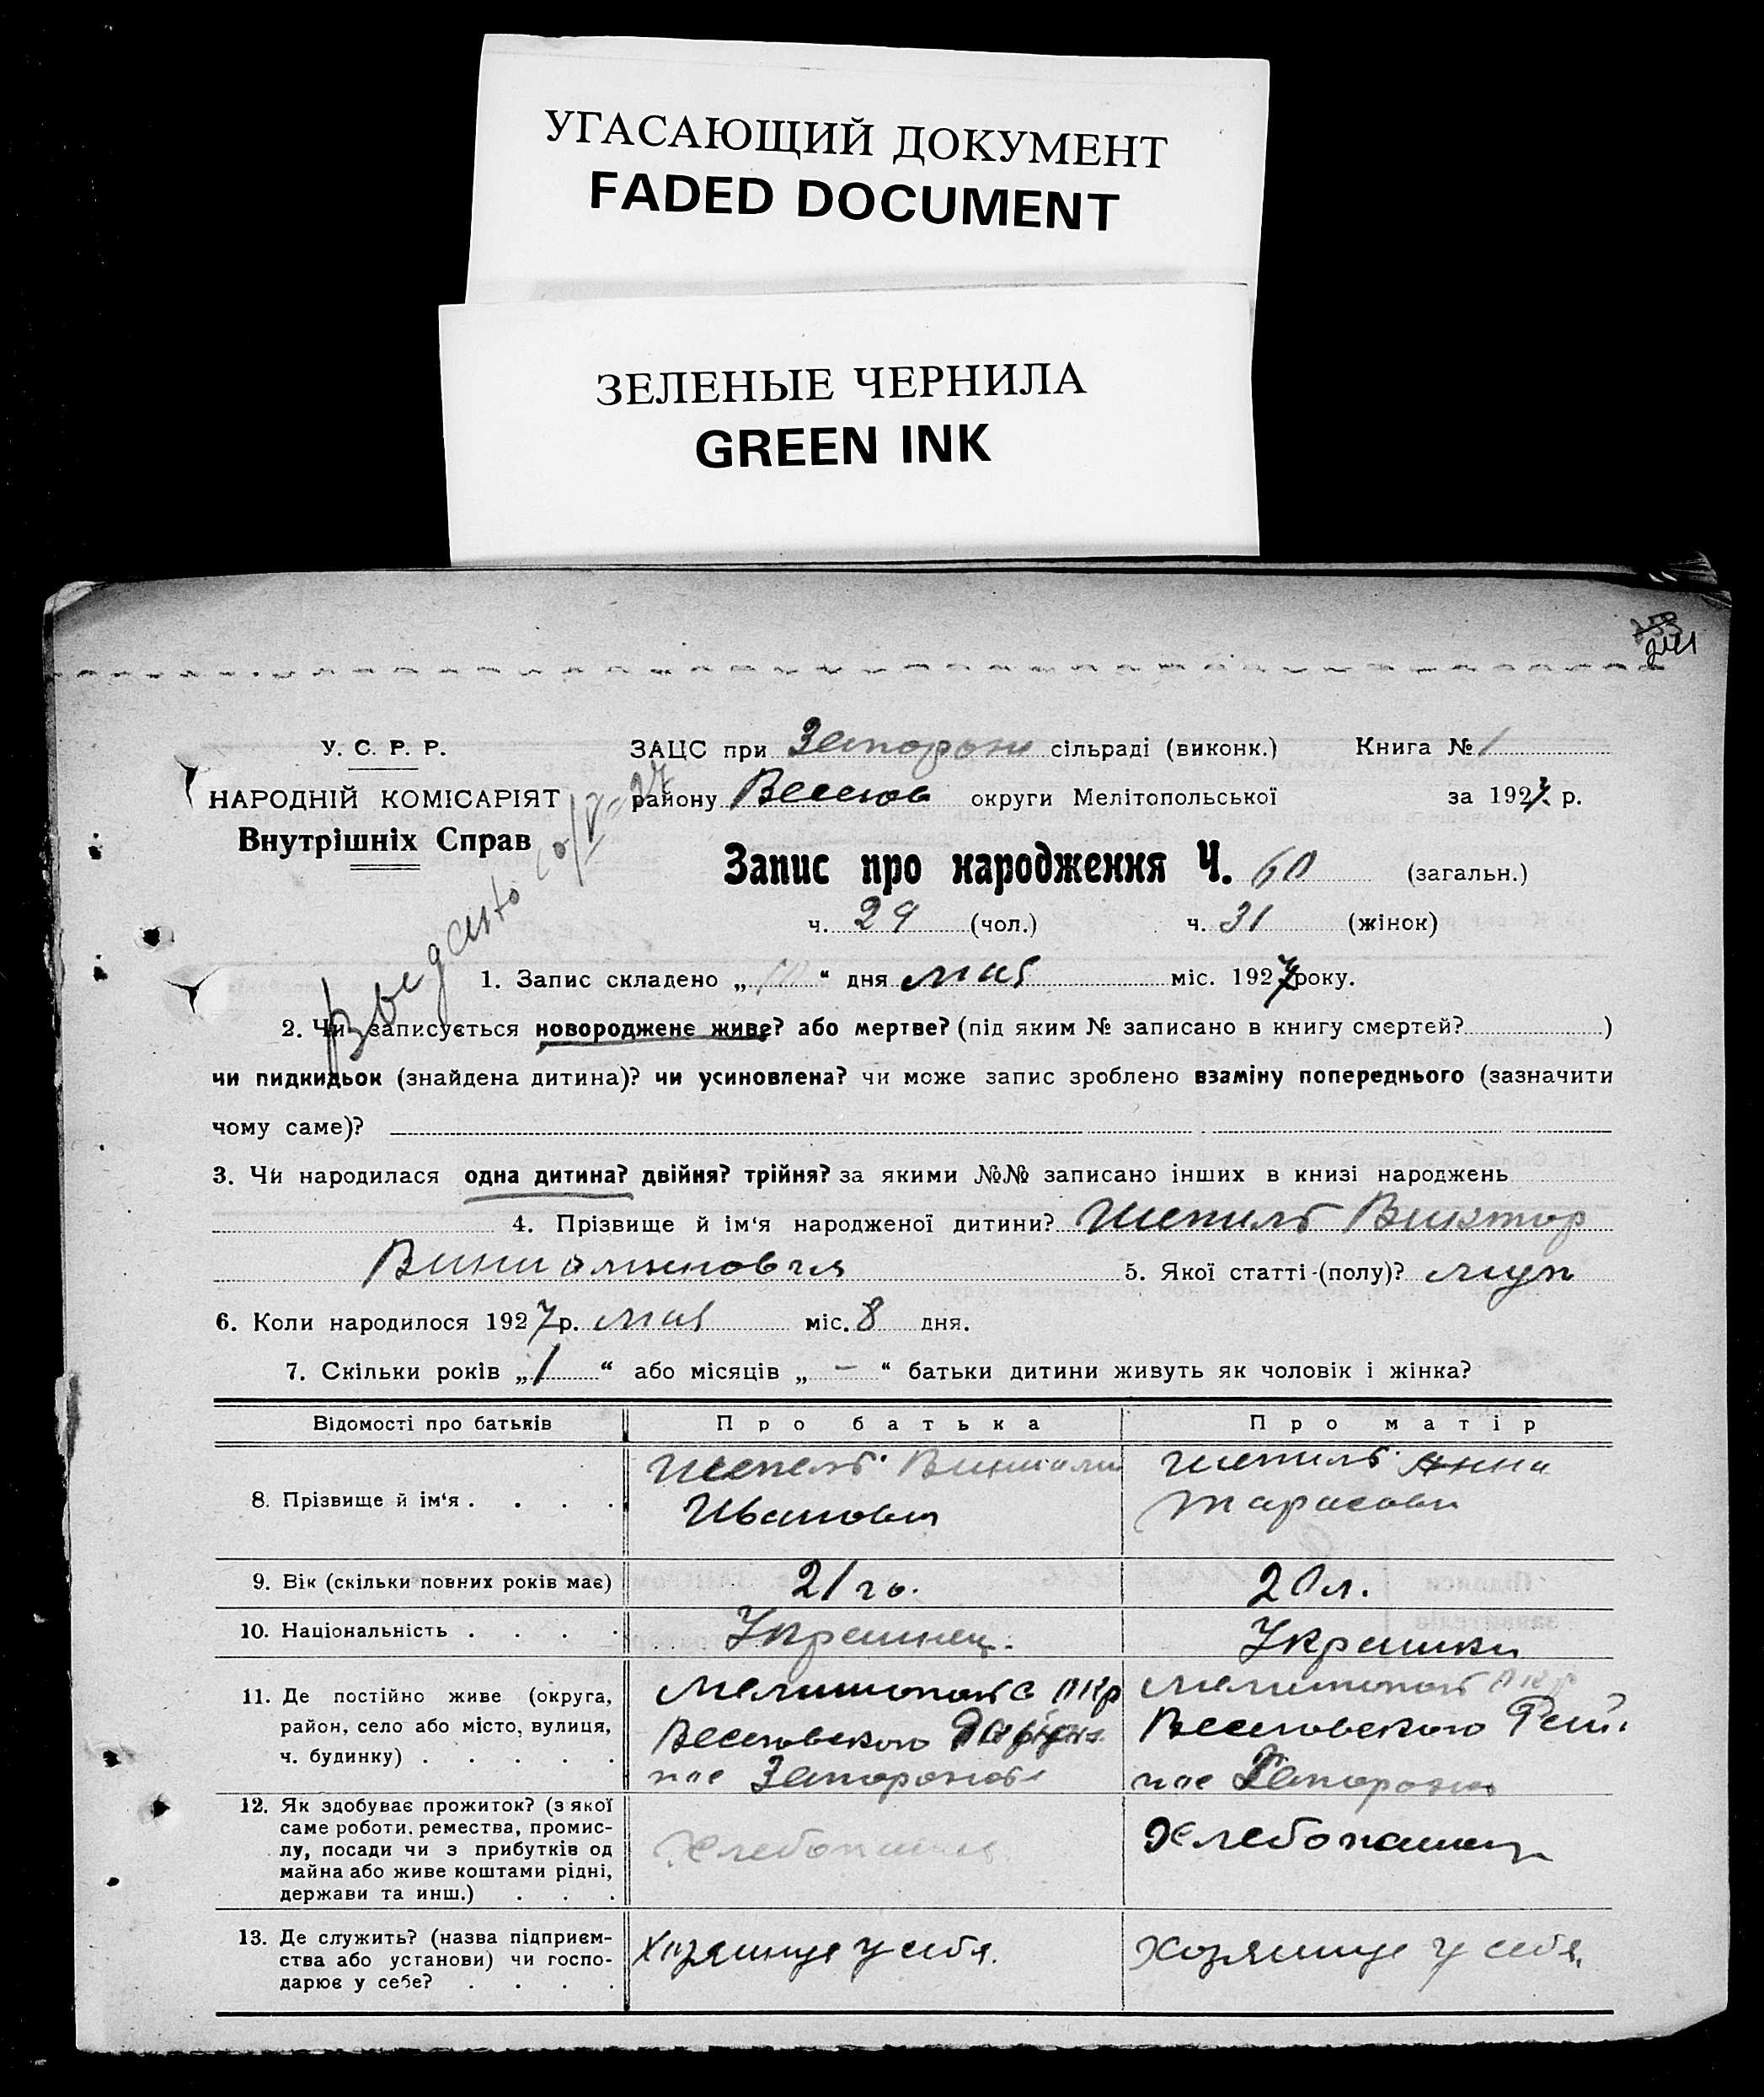 УГАСАЮЩИЙ ДОКУМЕНТ
FADED DOCUMENT
ЗЕЛЕНЫЕ ЧЕРНИЛА
GREEN INK
241
У. С. Р. Р.
НАРОДНІЙ КОМІСАРІЯТ
Внутрішніх Справ
ЗАЦС при Запорож сільраді (виконк.) Книга № 1
району Веселов округи Мелітопольської за 1927 р.
Запис про народження Ч. 60 (загальн.)
ч. 29 (чол.) ч. 31 (жінок)
1. Запис складено „10“ дня мая міс. 1927 року.
2. Чи записується новороджене живе? або мертве? (під яким № записано в книгу смертей? )
чи пидкидьок (знайдена дитина)? чи усиновлена? чи може запис зроблено взаміну попереднього (зазначити
чому саме)?
3. Чи народилася одна дитина? двійня? трійня? за якими №№ записано інших в книзі народжень
4. Прізвище й ім‘я народженої дитини? Шепиль Виктор
5. Якої статті (полу)? муж
6. Коли народилося 1927 р. мая міс. 8 дня.
7. Скільки років „1“ або місяців „—“ батьки дитини живуть як чоловік і жінка?
Відомості про батьків Про батька Про матір
8. Прізвище й ім‘я . . . . Шепель Витали Иванович Шепиль Анна Тарасовн
9. Вік (скільки повних років має) 21 го. 20 л.
10. Національність . . . . Украинец. Украинки
11. Де постійно живе (округа, район, село або місто, вулиця, ч. будинку) . . . . . Мелитопольс окр Веселовского Района пос Запорожье Мелитополь окр Веселовского Рай. пос Запорожье
12. Як здобуває прожиток? (з якої саме роботи. ремества, промислу, посади чи з прибутків од майна або живе коштами рідні, держави та инш.) . . . Хлебопашец Хлебопашец
13. Де служить? (назва підприємства або установи) чи господарює у себе? . . . . Хозяинує у себя. Хозяинує у себя.